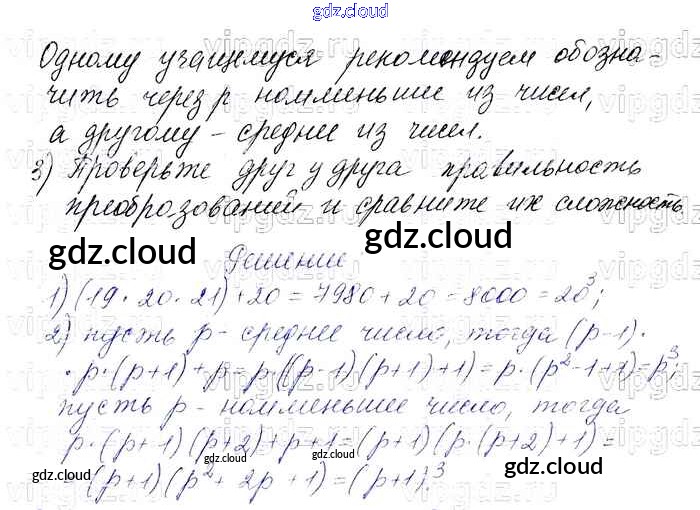 gdz.cloud
Одному учащемуся рекомендуем обозна-
чить через p наименьшее из чисел,
а другому - среднее из чисел.
3) Проверьте друг у друга правильность
преобразований и сравните их сложность
gdz.cloud
gdz.cloud
Решение
1) (19 · 20 · 21) + 20 = 7980 + 20 = 8000 = 20³;
2) пусть p - среднее число, тогда (p-1) ·
· p · (p+1) + p = p · ((p-1)(p+1)+1) = p · (p²-1+1) = p³
пусть p - наименьшее число, тогда
p · (p+1)(p+2)+p+1 = (p+1)(p · (p+2)+1) =
(p+1)(p² + 2p + 1) = (p+1)³
gdz.cloud
gdz.cloud
gdz.cloud
gdz.cloud